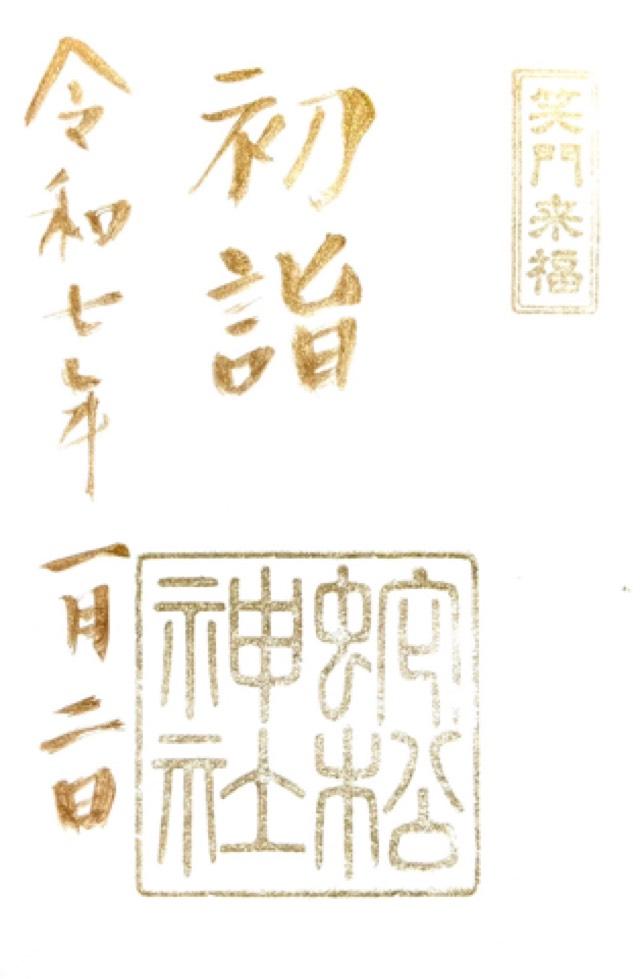 笑門来福
初詣
蛇松
神社
令和七年
一月二日